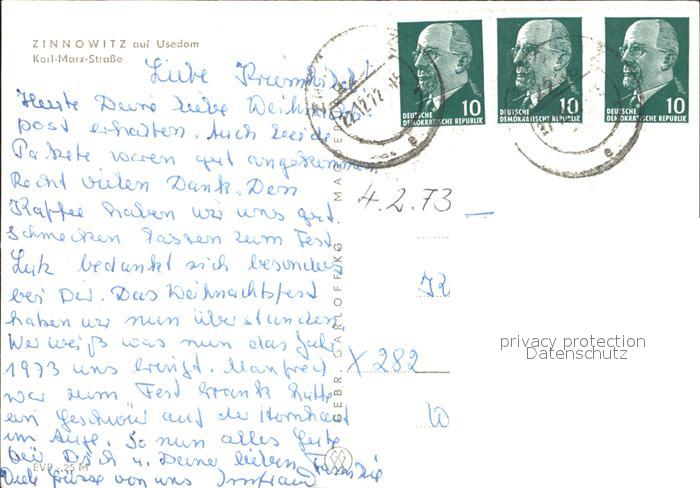 ZINNOWITZ auf Usedom
Karl-Marx-Straße
10
DEUTSCHE
DEMOKRATISCHE REPUBLIK
10
DEUTSCHE
DEMOKRATISCHE REPUBLIK
10
DEUTSCHE
DEMOKRATISCHE REPUBLIK
Liebe
Heute Deine liebe Weihnachts-
post erhalten. Auch beide
Pakete waren gut angekommen
Recht vielen Dank. Den
Kaffee haben wir uns gut
schmecken lassen zum Fest.
Lutz bedankt sich besonders
bei Dir. Das Weihnachtsfest
haben wir nun überstanden
Wer weiß was nun das Jahr
1973 uns bringt. Manfred
war zum Fest krank hatte
ein Geschwür auf der Hornhaut
im Auge. So nun alles Gute
für Dich u. Deine lieben Familie
Viele Grüsse von uns Irmtraud
EVP -,25 M
GEBR. GARLOFF KG. MAGDEBURG
4.2.73
X 282
privacy protection
Datenschutz